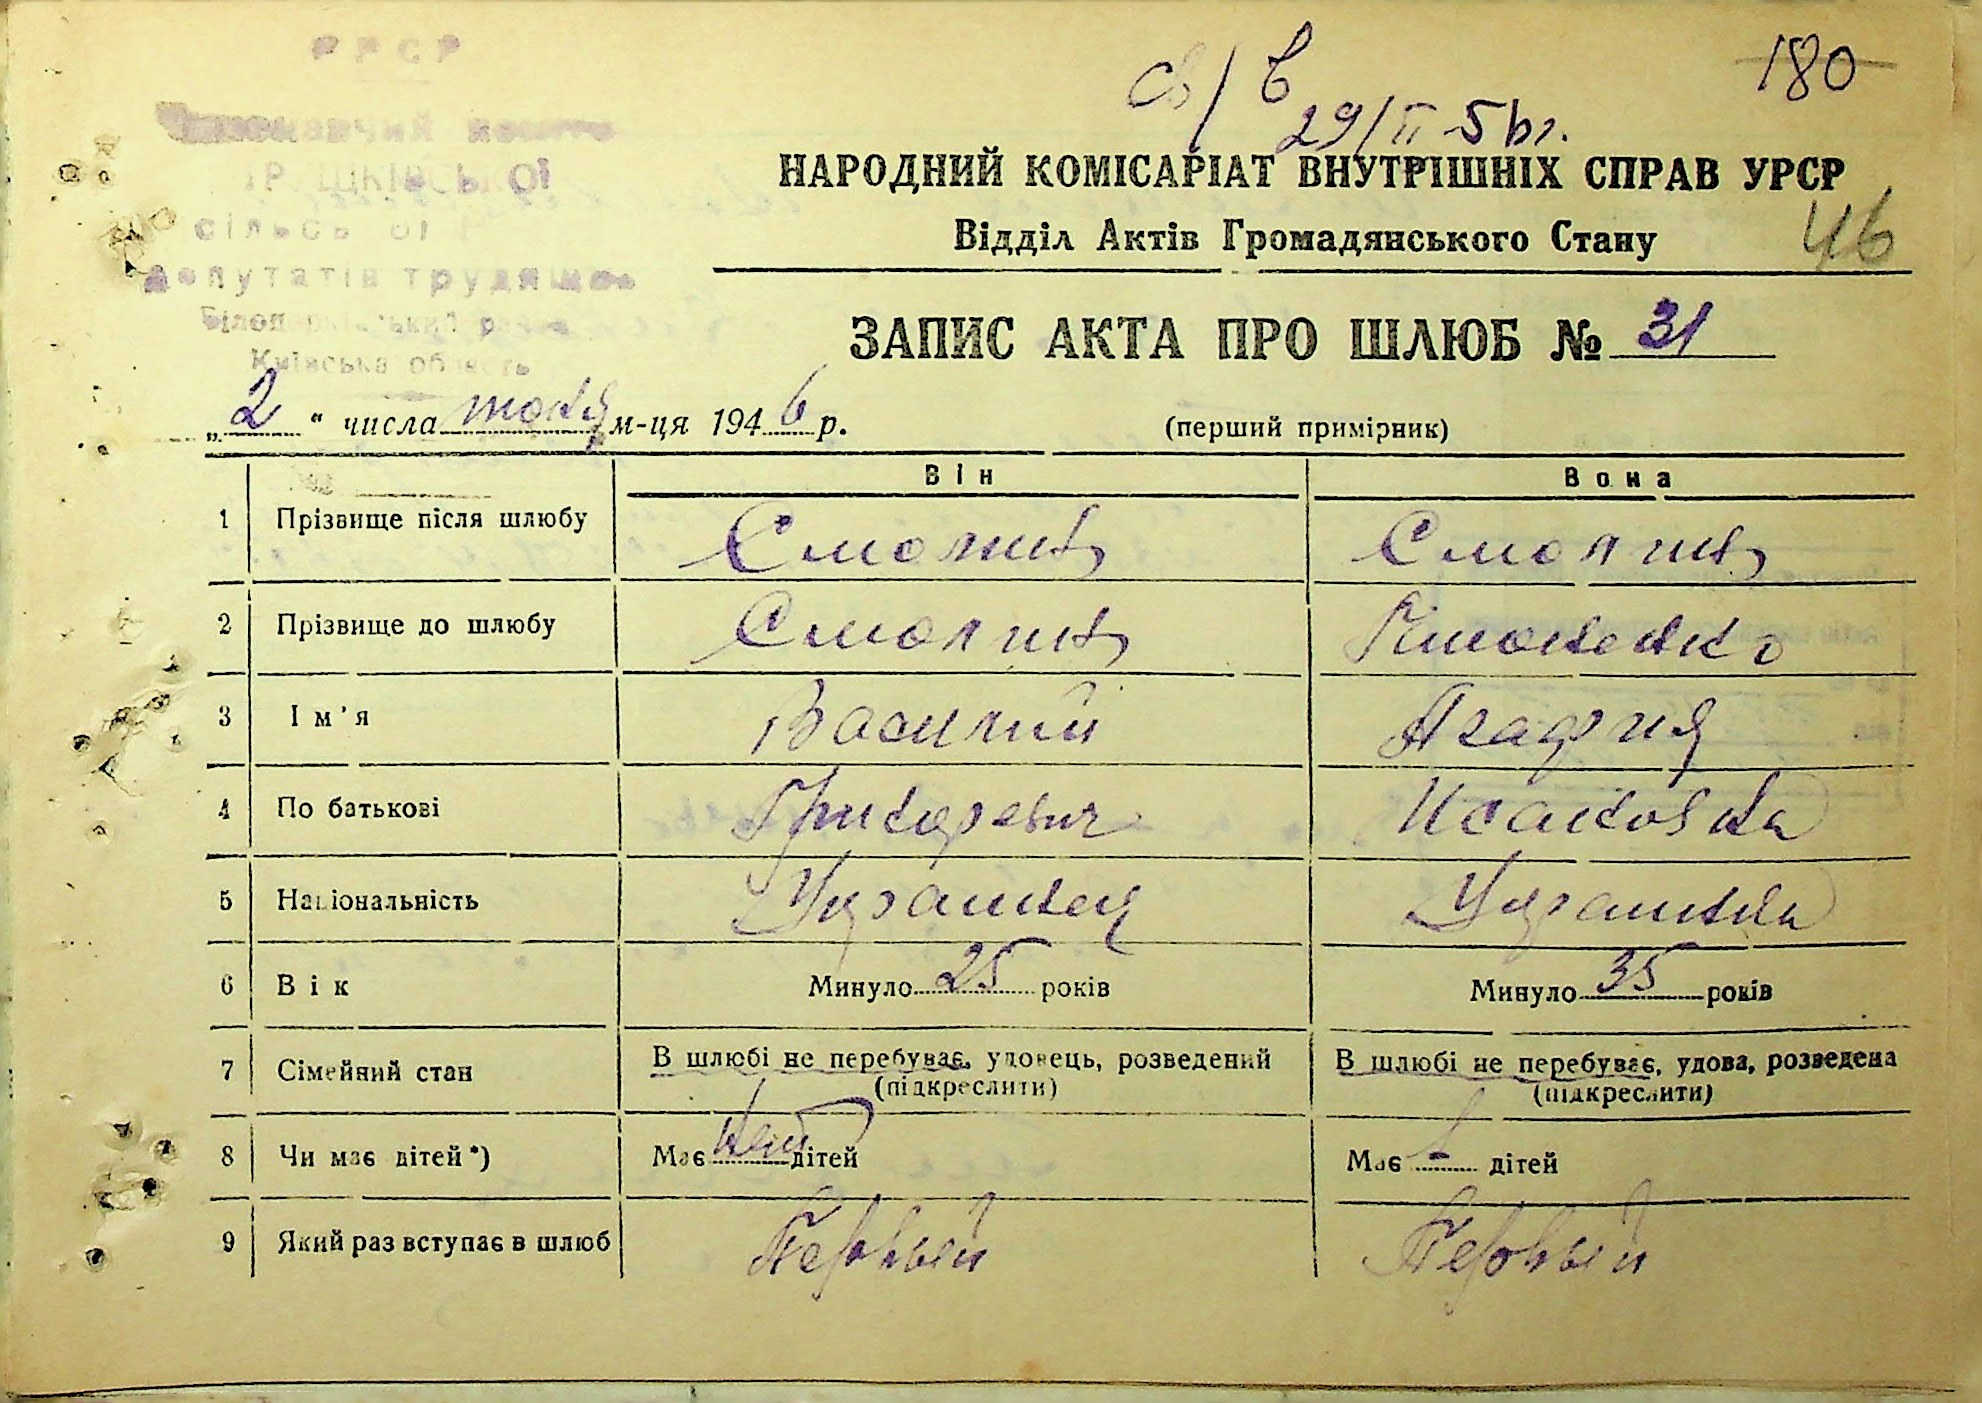 УРСР
св/в
180
29/II 56г.
виконавчий
сільсь ої
депутатів трудящих
Київська область
НАРОДНИЙ КОМІСАРІАТ ВНУТРІШНІХ СПРАВ УРСР
Відділ Актів Громадянського Стану
46
ЗАПИС АКТА ПРО ШЛЮБ № 31
„ 2 “ числа июня м-ця 1946 р.
(перший примірник)
Він Вона
1 Прізвище після шлюбу Смолин Смолин
2 Прізвище до шлюбу Смолин Тимоненко
3 Ім'я Василий Агафия
4 По батькові Григоревич Исаковна
5 Національність Украинец Украинка
6 Вік Минуло 25 років Минуло 35 років
7 Сімейний стан В шлюбі не перебуває, удовець, розведений В шлюбі не перебуває, удова, розведена
(підкреслити) (підкреслити)
8 Чи має дітей*) Має нет дітей Має дітей
9 Який раз вступає в шлюб Первый Первый